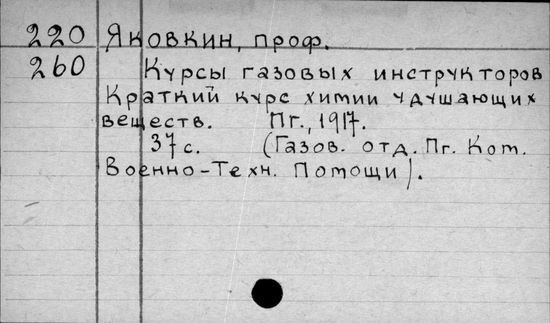 220 Яковкин, проф.
260 Курсы газовых инструкторов
Краткий курс химии удушающих
веществ. Пг., 1917.
37 с. (Газов. отд. Пг. Кот.
Военно-Техн. Помощи).